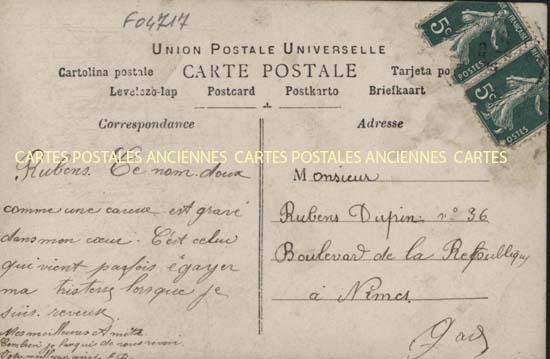 F04717
UNION POSTALE UNIVERSELLE
Cartolina postale CARTE POSTALE Tarjeta po
Levelezö-lap Postcard Postkarto Briefkaart
Correspondance
Adresse
CARTES POSTALES ANCIENNES CARTES POSTALES ANCIENNES CARTES
Rubens. Ce nom doux
comme une caresse est gravé
dans mon cœur. C'est celui
qui vient parfois égayer
ma tristesse lorsque je
suis rêveuse
Mes meilleures Amitiés
Combien je languis de vous revoir.
Votre meilleure amie
Monsieur
Rubens Dupin n° 36
Boulevard de la République
à Nîmes
Gard
5c
POSTES
5c
POSTES